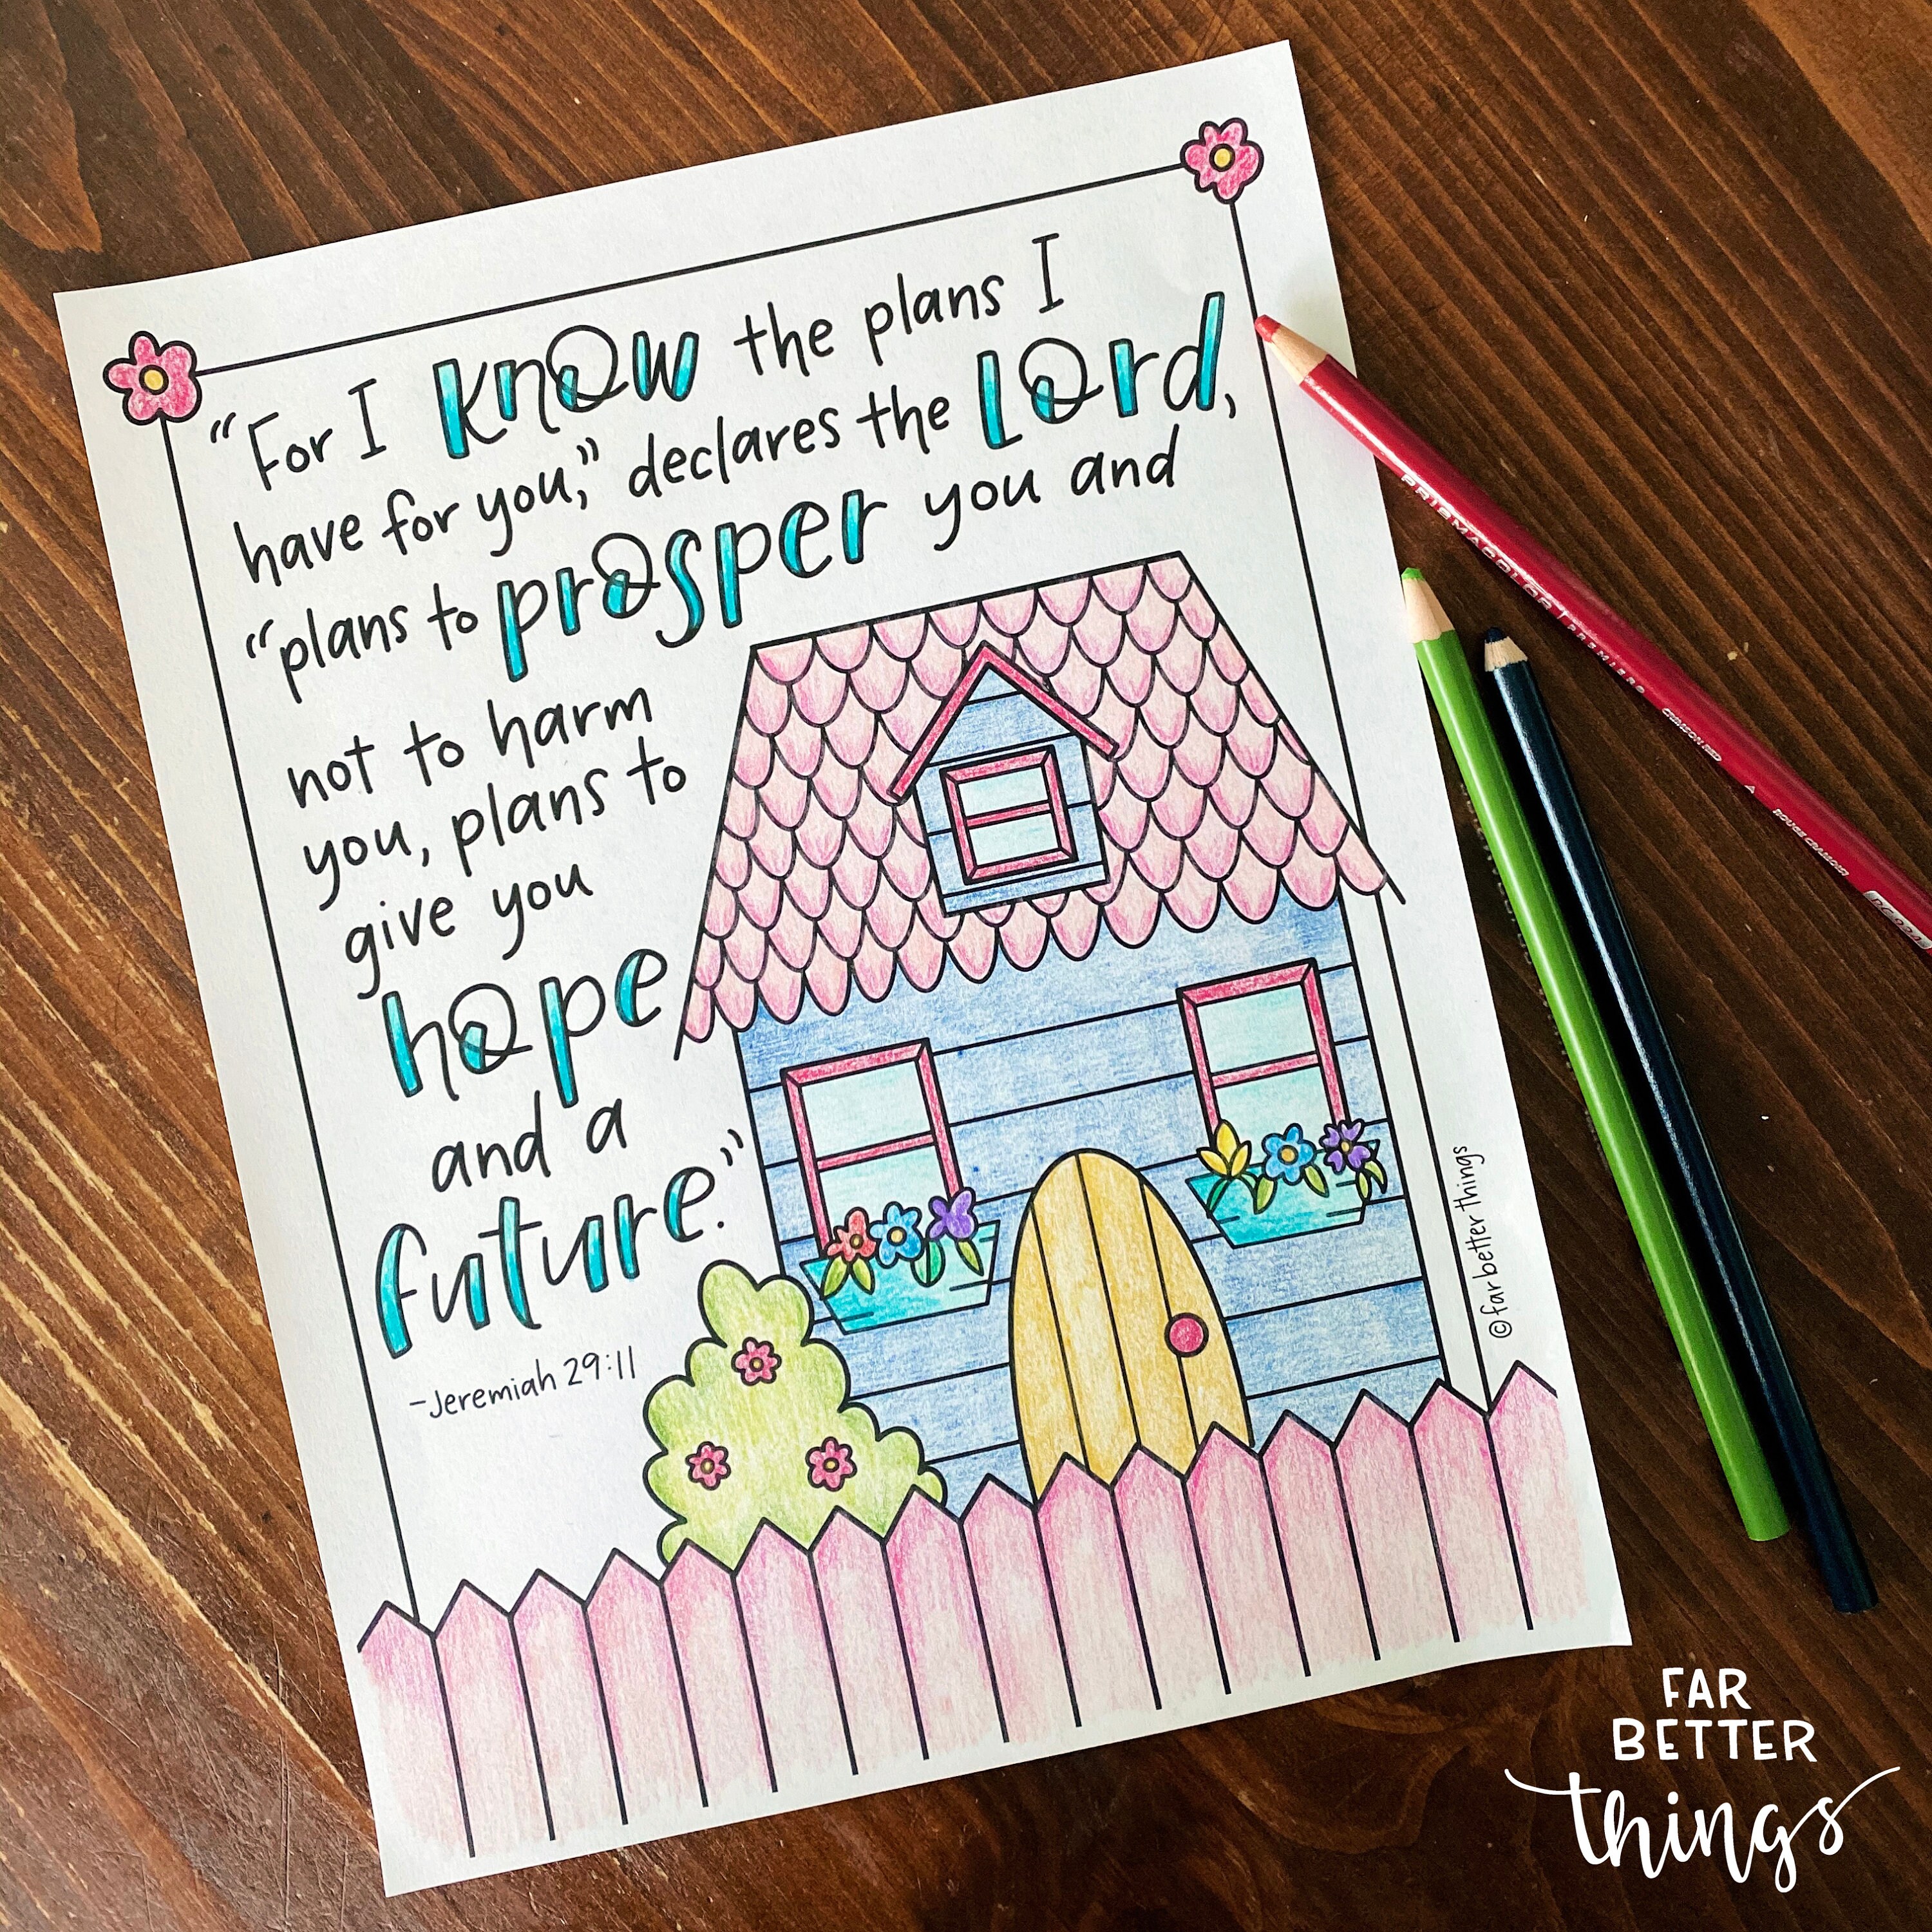 "For I know the plans I
have for you," declares the Lord,
"plans to prosper you and
not to harm
you, plans to
give you
hope
and a
future."
-Jeremiah 29:11
©far better things
PRISMACOLOR PREMIER
CRIMSON RED
ROUGE CRAMOISI
PC 924
FAR
BETTER
things